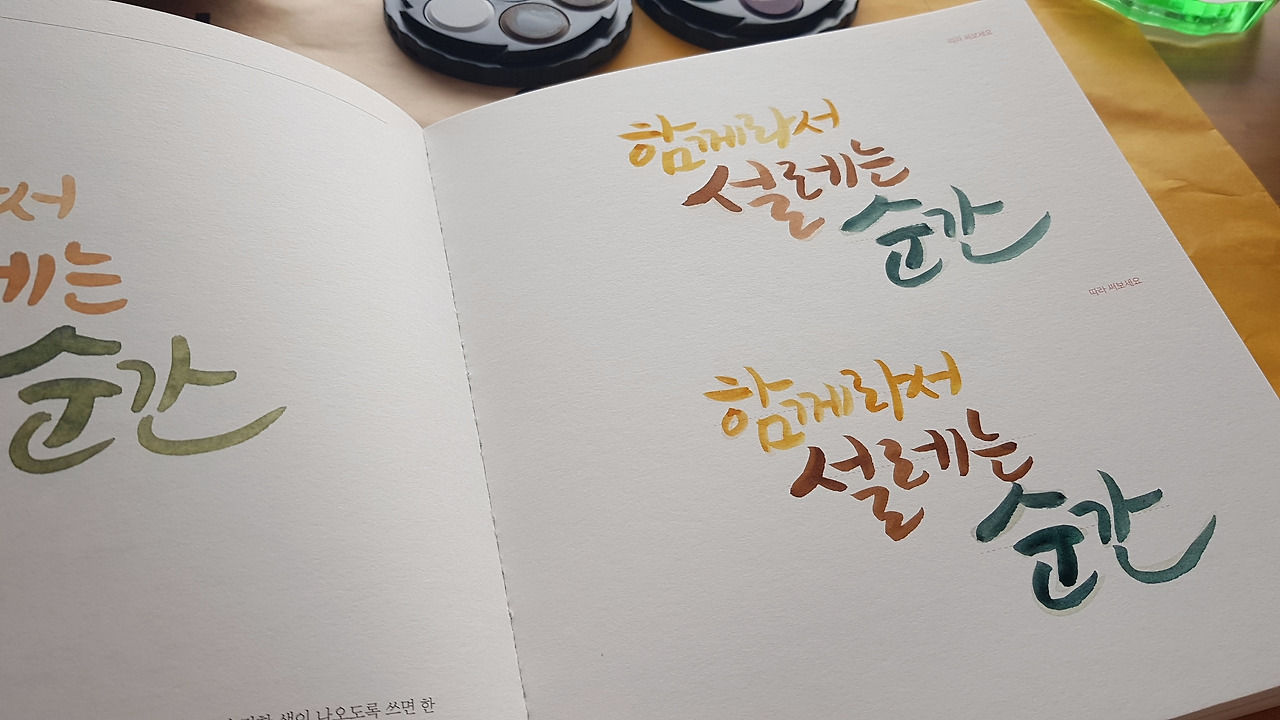 서
레는
순간
색이 나오도록 쓰면 한
따라 써보세요
함께라서
설레는
순간
따라 써보세요
함께라서
설레는
순간